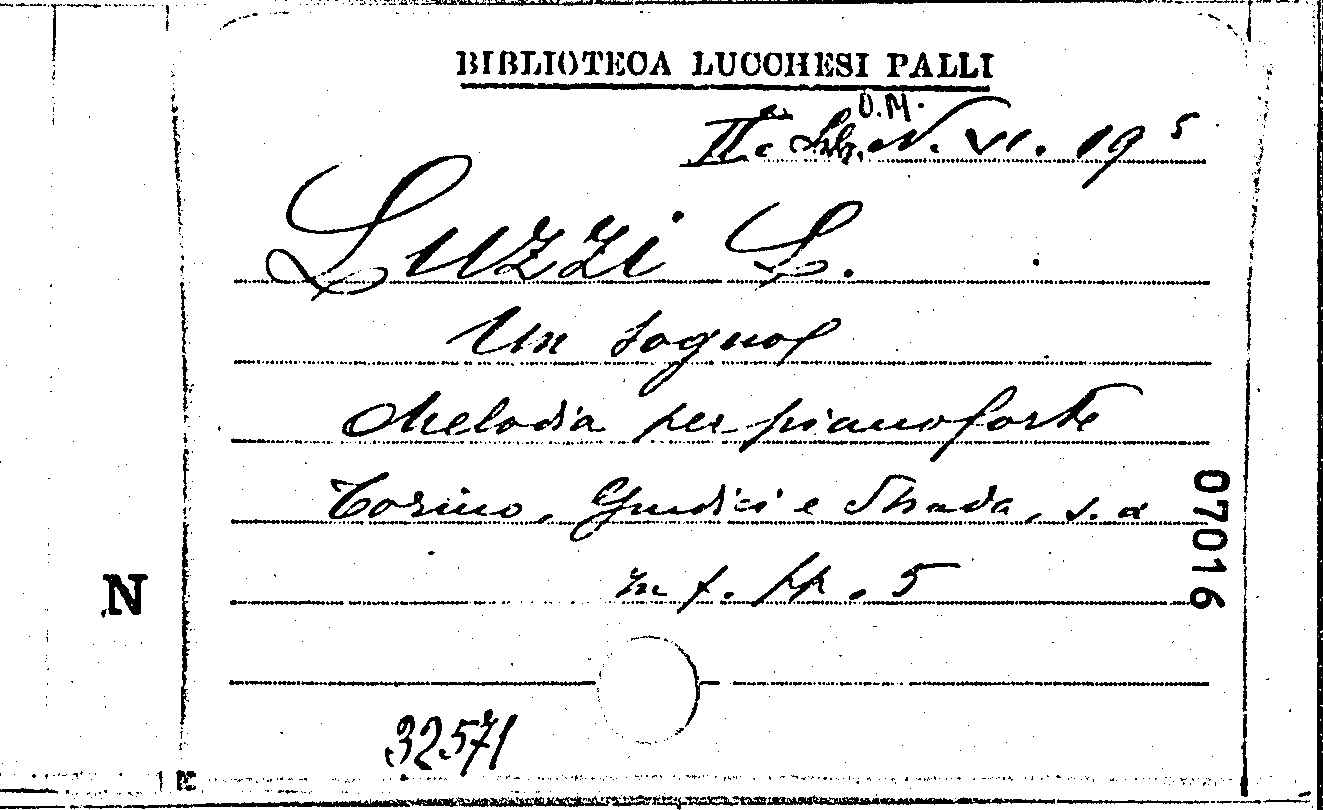 BIBLIOTECA LUCCHESI PALLI
O.M.
II. N. VI. 19 5
Luzzi L.
Un sogno!
Melodia per pianoforte
Torino, Giudici e Strada, s. a
in f. pp. 5
07016
N
32571